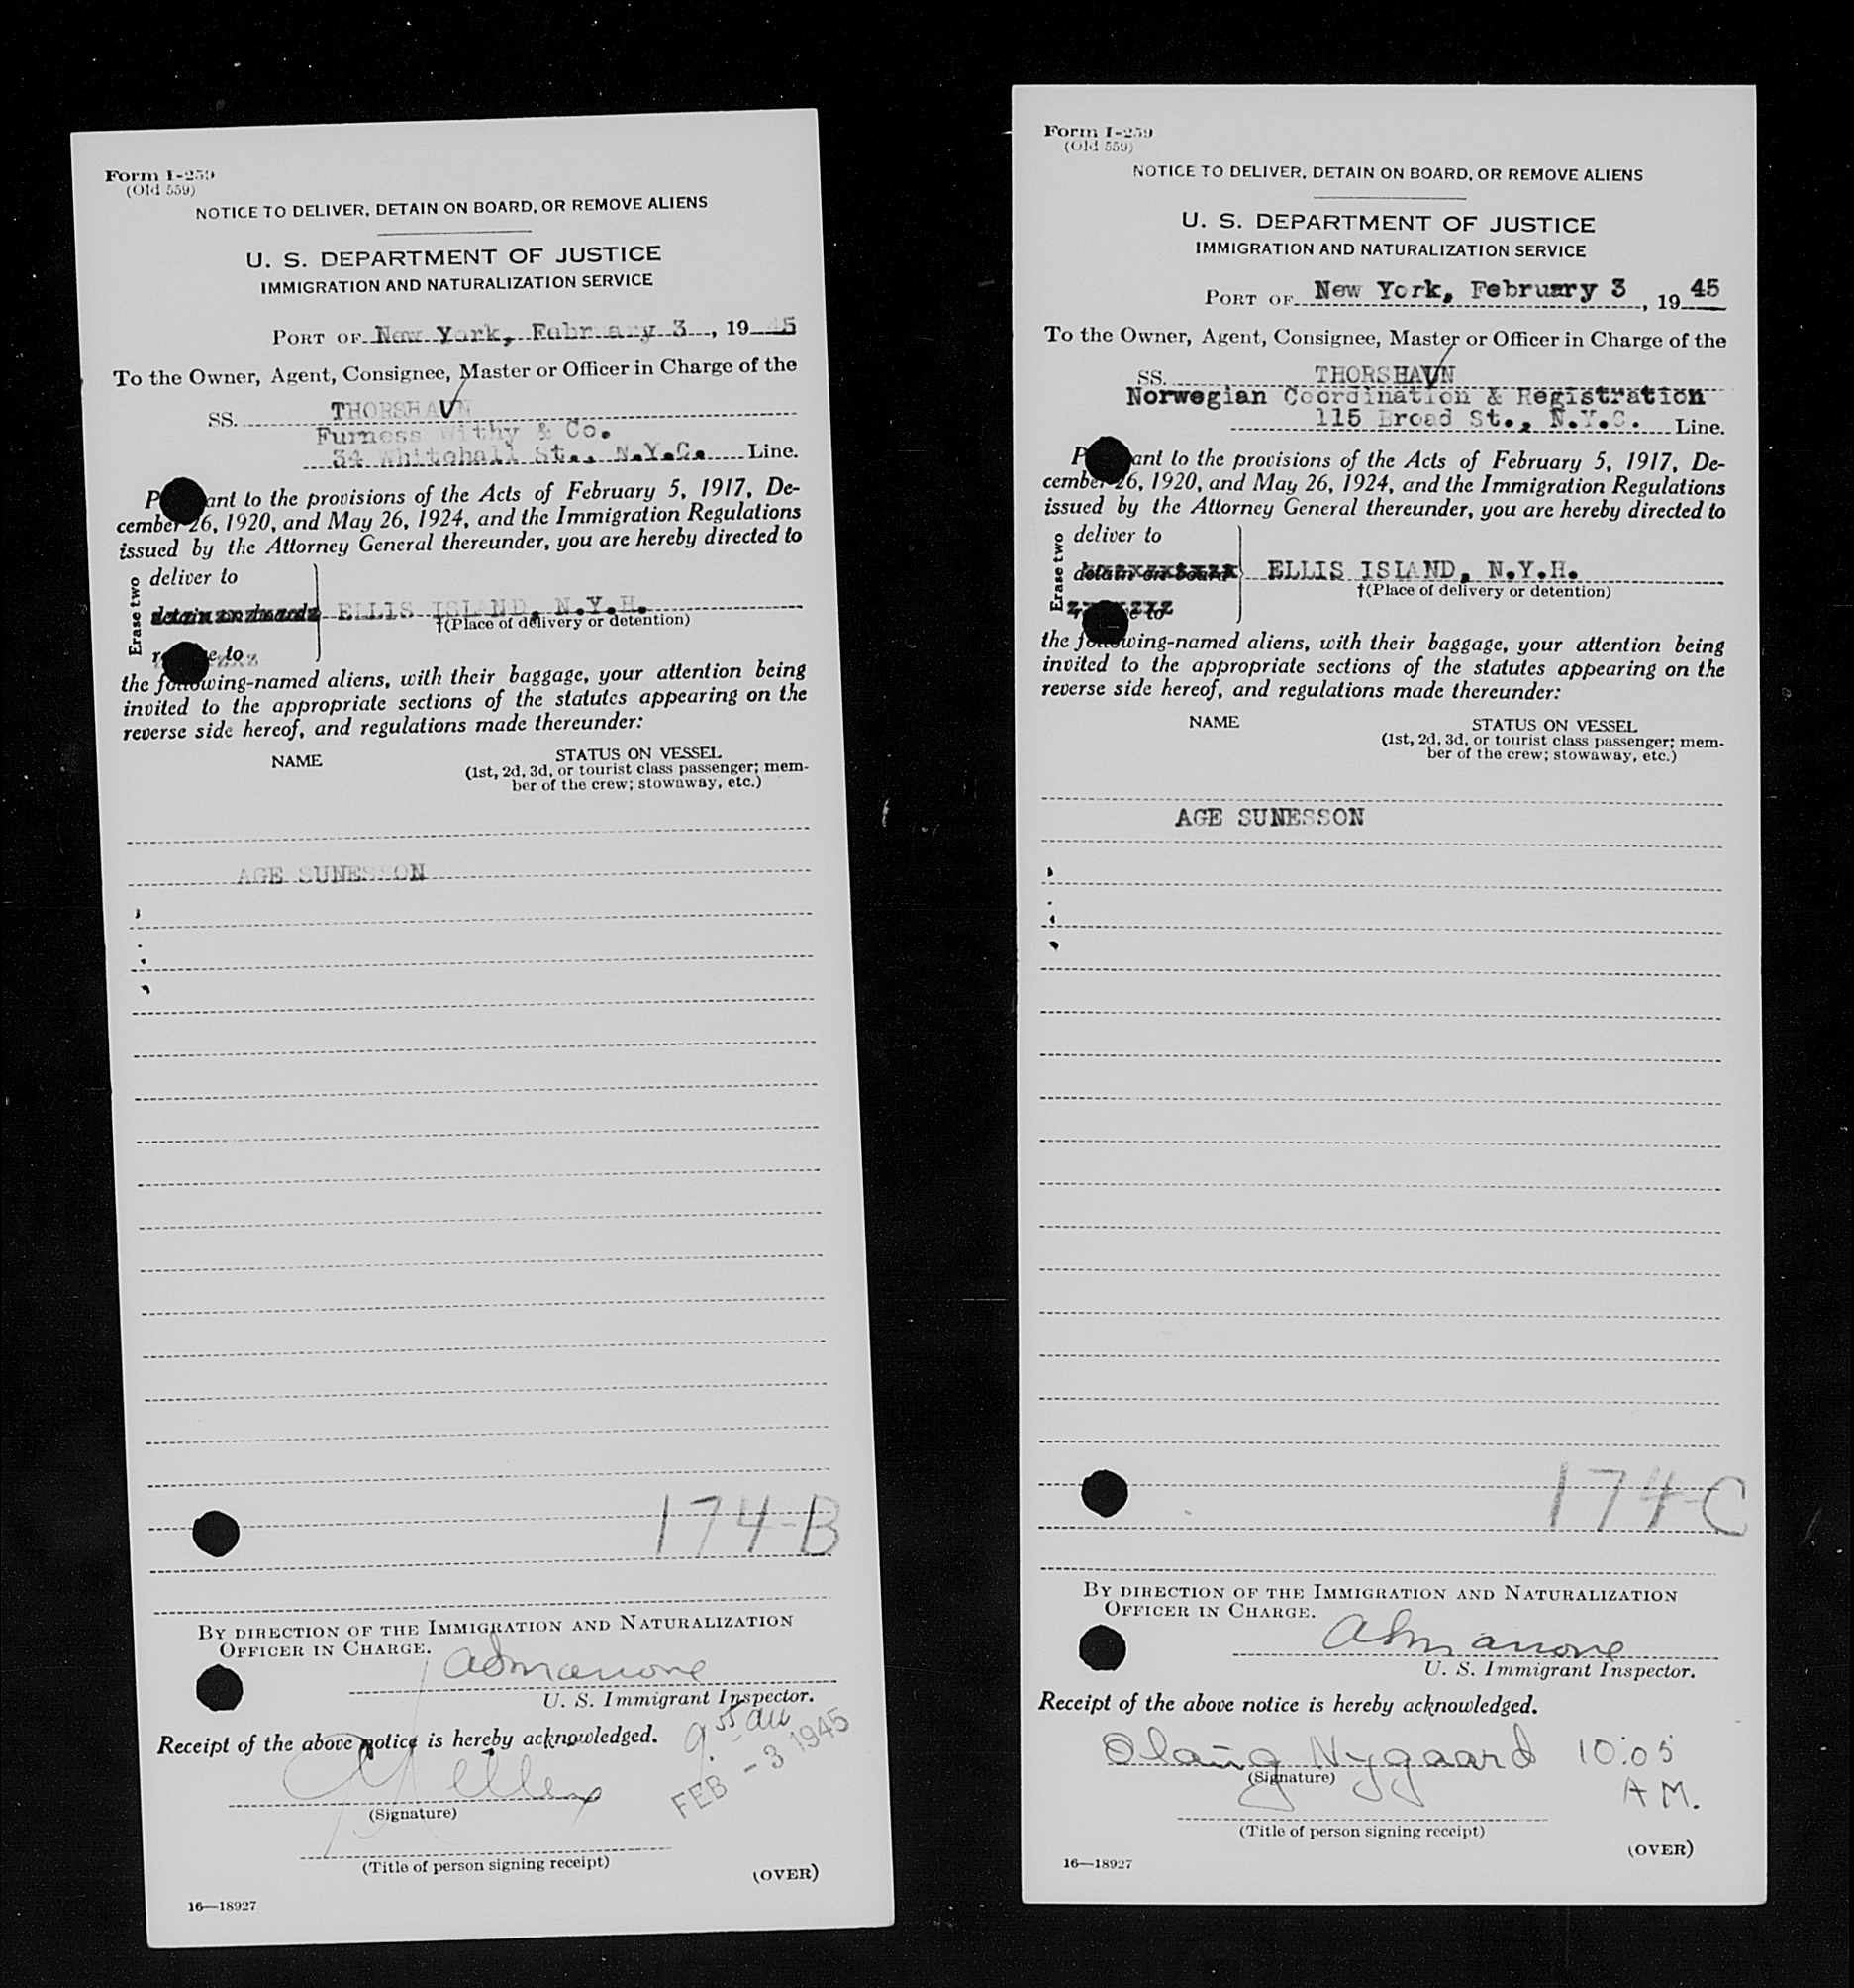 Form I-259
(Old 559)
NOTICE TO DELIVER, DETAIN ON BOARD, OR REMOVE ALIENS
U. S. DEPARTMENT OF JUSTICE
IMMIGRATION AND NATURALIZATION SERVICE
PORT OF New York, February 3, 19 45
To the Owner, Agent, Consignee, Master or Officer in Charge of the
SS. THORSHAVN
Furness Withy & Co.
34 Whitehall St., N.Y.C. Line.
P ant to the provisions of the Acts of February 5, 1917, De-
cember 26, 1920, and May 26, 1924, and the Immigration Regulations
issued by the Attorney General thereunder, you are hereby directed to
Erase two
deliver to
detain on board ELLIS ISLAND, N.Y.H.
†(Place of delivery or detention)
r e to
the following-named aliens, with their baggage, your attention being
invited to the appropriate sections of the statutes appearing on the
reverse side hereof, and regulations made thereunder:
NAME STATUS ON VESSEL
(1st, 2d, 3d, or tourist class passenger; mem-
ber of the crew; stowaway, etc.)
AGE SUNESSON
174-B
BY DIRECTION OF THE IMMIGRATION AND NATURALIZATION
OFFICER IN CHARGE.
U. S. Immigrant Inspector.
Receipt of the above notice is hereby acknowledged.
9.55 AM
FEB - 3 1945
(Signature)
(Title of person signing receipt)
(OVER)
16—18927
Form I-259
(Old 559)
NOTICE TO DELIVER, DETAIN ON BOARD, OR REMOVE ALIENS
U. S. DEPARTMENT OF JUSTICE
IMMIGRATION AND NATURALIZATION SERVICE
PORT OF New York, February 3, 19 45
To the Owner, Agent, Consignee, Master or Officer in Charge of the
SS. THORSHAVN
Norwegian Coordination & Registration
115 Broad St., N.Y.C. Line.
P ant to the provisions of the Acts of February 5, 1917, De-
cember 26, 1920, and May 26, 1924, and the Immigration Regulations
issued by the Attorney General thereunder, you are hereby directed to
Erase two
deliver to
detain on board ELLIS ISLAND, N.Y.H.
†(Place of delivery or detention)
r e to
the following-named aliens, with their baggage, your attention being
invited to the appropriate sections of the statutes appearing on the
reverse side hereof, and regulations made thereunder:
NAME STATUS ON VESSEL
(1st, 2d, 3d, or tourist class passenger; mem-
ber of the crew; stowaway, etc.)
AGE SUNESSON
174-C
BY DIRECTION OF THE IMMIGRATION AND NATURALIZATION
OFFICER IN CHARGE.
U. S. Immigrant Inspector.
Receipt of the above notice is hereby acknowledged.
Olaug Nygaard 10:05
(Signature)
A M.
(Title of person signing receipt)
(OVER)
16—18927